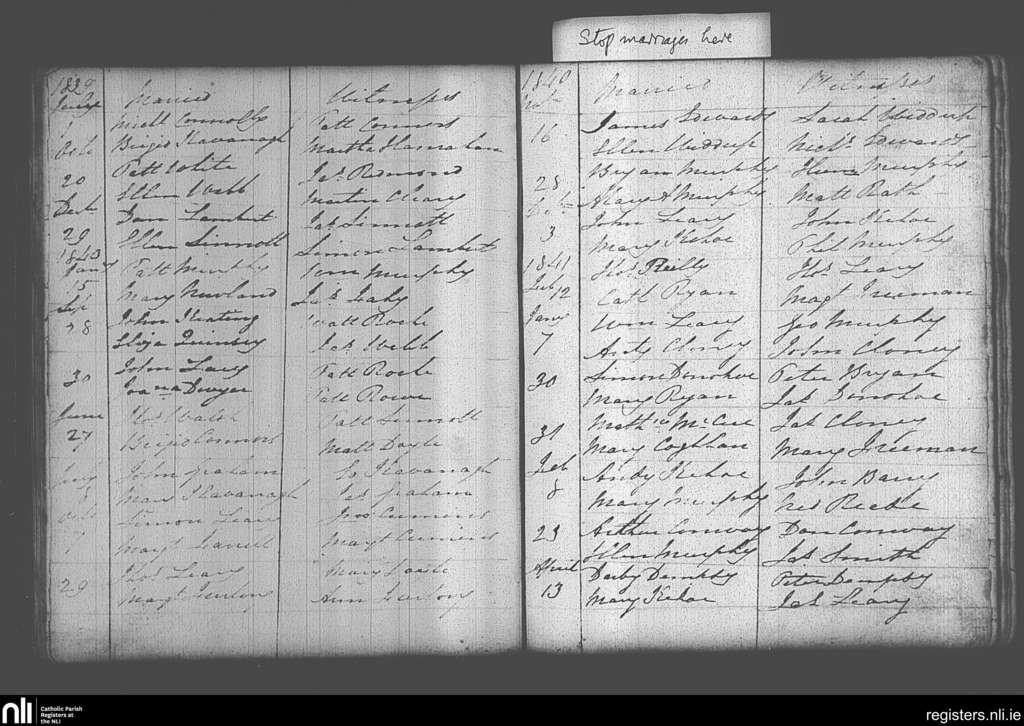 Stop marriages here
1839
Married Witnesses
Michl Connolly Patt Connors
Oct Bridget Kavanagh Martha Hanrahan
20 Patt White Jas Redmond
Ellen Webb Martin Cleary
Dan Lambert Jas Sinnott
29 Ellen Sinnott Simon Lambert
1840
Jany Patt Murphy Wm Murphy
15 Mary Newland Jas Leahy
John Keating Watt Roche
28 Eliza Quinsey Jas Webb
John Leary Patt Roche
30 Joana Dwyer Patt Rowe
June Thos Walsh Patt Sinnott
27 Bridget Connors Matt Doyle
John Graham Kavanagh
8 Mary Kavanagh Jas Graham
Simon Leary Cummins
7 Margt Margt Cummins
Thos Leary Mary
29 Margt Ann
1840
Married Witnesses
16 James Edwards Sarah Widdup
Ellen Widdup Nichs Edwards
28 Bryan Murphy Murphy
Mary A Murphy Matt Rath
John Leary John Kehoe
3 Mary Kehoe Phil Murphy
1841 Thos Reilly Thos Leary
Feb 12 Cath Ryan Magt Freeman
Jany Wm Leary Geo Murphy
7 Anty Cloney John Cloney
30 Simon Donohoe Peter Bryan
Mary Ryan Jas Donohoe
31 Mathw McCue Jas Cloney
Mary Coghlan Mary Freeman
Feb Andy Kehoe John Barry
8 Mary Murphy
23 Arthur Conway Dan Conway
Ellen Murphy Jas Smith
April Darby Dempsy Peter Dempsy
13 Mary Kehoe Jas Leary
nli Catholic Parish
Registers at
the NLI
registers.nli.ie